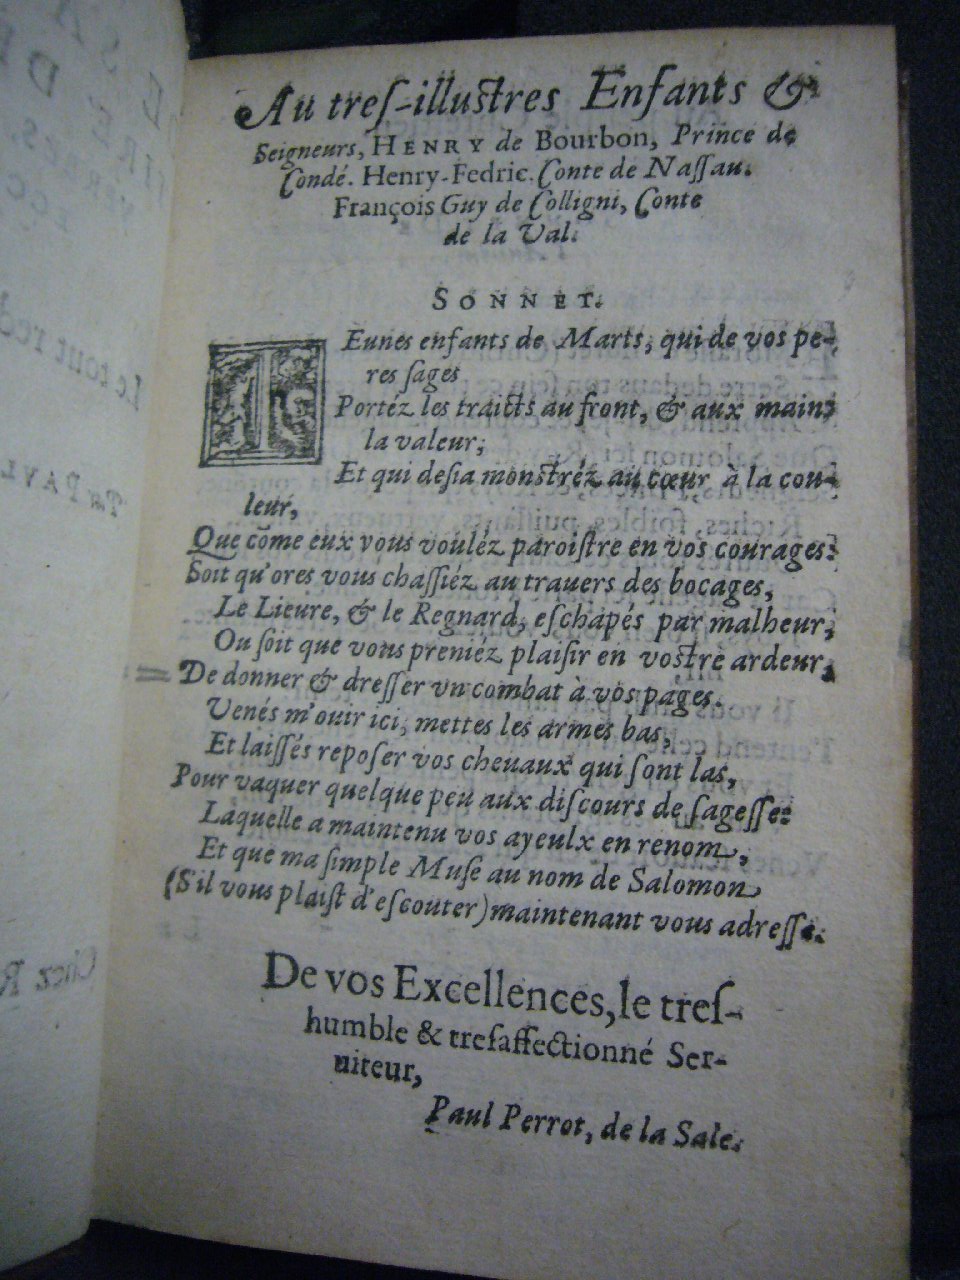 Au treſ-illuſtres Enfants &
Seigneurs, HENRY de Bourbon, Prince de
Condé. Henry-Fedric. Conte de Naſſau.
François Guy de Colligni, Conte
de la Val.
SONNET.
IEunes enfants de Marts, qui de vos pe-
res ſages
Portéz les traicts au front, & aux mains
la valeur;
Et qui deſia monſtréz au cœur à la cou-
leur,
Que cõme eux vous vouléz paroiſtre en vos courages:
Soit qu'ores vous chaſſiéz au trauers des bocages,
Le Lieure, & le Regnard, eſchapés par malheur;
Ou ſoit que vous preniéz plaiſir en voſtre ardeur,
De donner & dreſſer vn combat à vos pages.
Venés m'ouir ici, mettes les armes bas,
Et laiſſés repoſer vos cheuaux qui ſont las,
Pour vaquer quelque peu aux diſcours de ſageſſe:
Laquelle a maintenu vos ayeulx en renom,
Et que ma ſimple Muſe au nom de Salomon
(S'il vous plaiſt d'eſcouter) maintenant vous adreſſe.
De vos Excellences, le treſ-
humble & treſaffectionné Ser-
uiteur,
Paul Perrot, de la Sale.